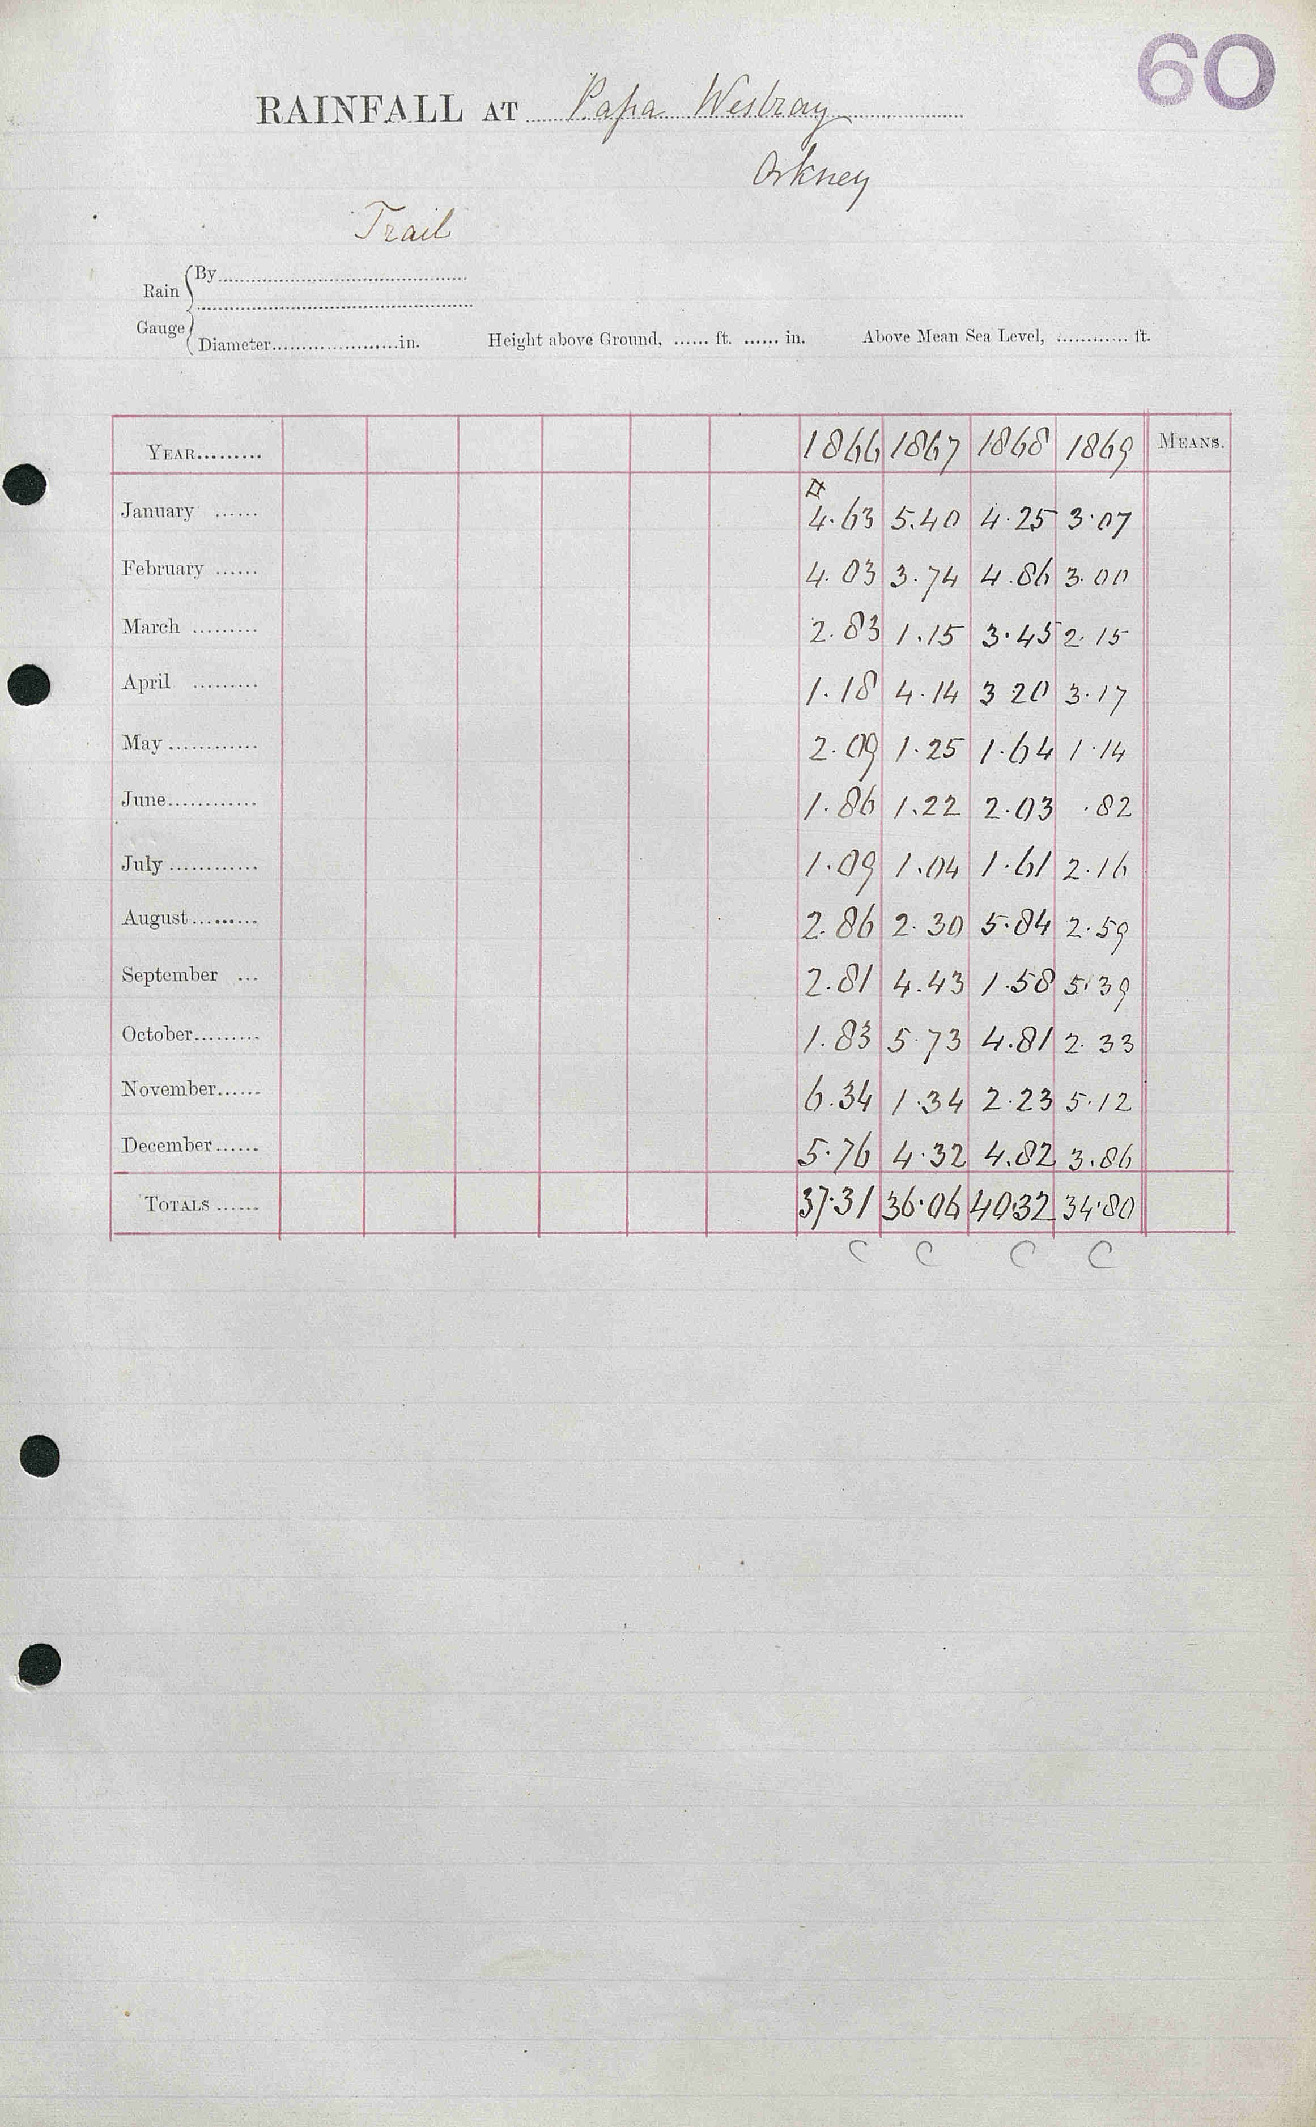 60
RAINFALL AT Papa Westray
Orkney
Trail
Rain Gauge
By
Diameter in. Height above Ground, ft. in. Above Mean Sea Level, ft.
YEAR 1866 1867 1868 1869 MEANS.
¤
January 4.63 5.40 4.25 3.07
February 4.03 3.74 4.86 3.00
March 2.83 1.15 3.45 2.15
April 1.18 4.14 3 20 3.17
May 2.09 1.25 1.64 1.14
June 1.86 1.22 2.03 .82
July 1.09 1.04 1.61 2.16
August 2.86 2.30 5.84 2.59
September 2.81 4.43 1.58 5.39
October 1.83 5.73 4.81 2.33
November 6.34 1.34 2.23 5.12
December 5.76 4.32 4.82 3.86
TOTALS 37.31 36.06 40.32 34.80
C C C C